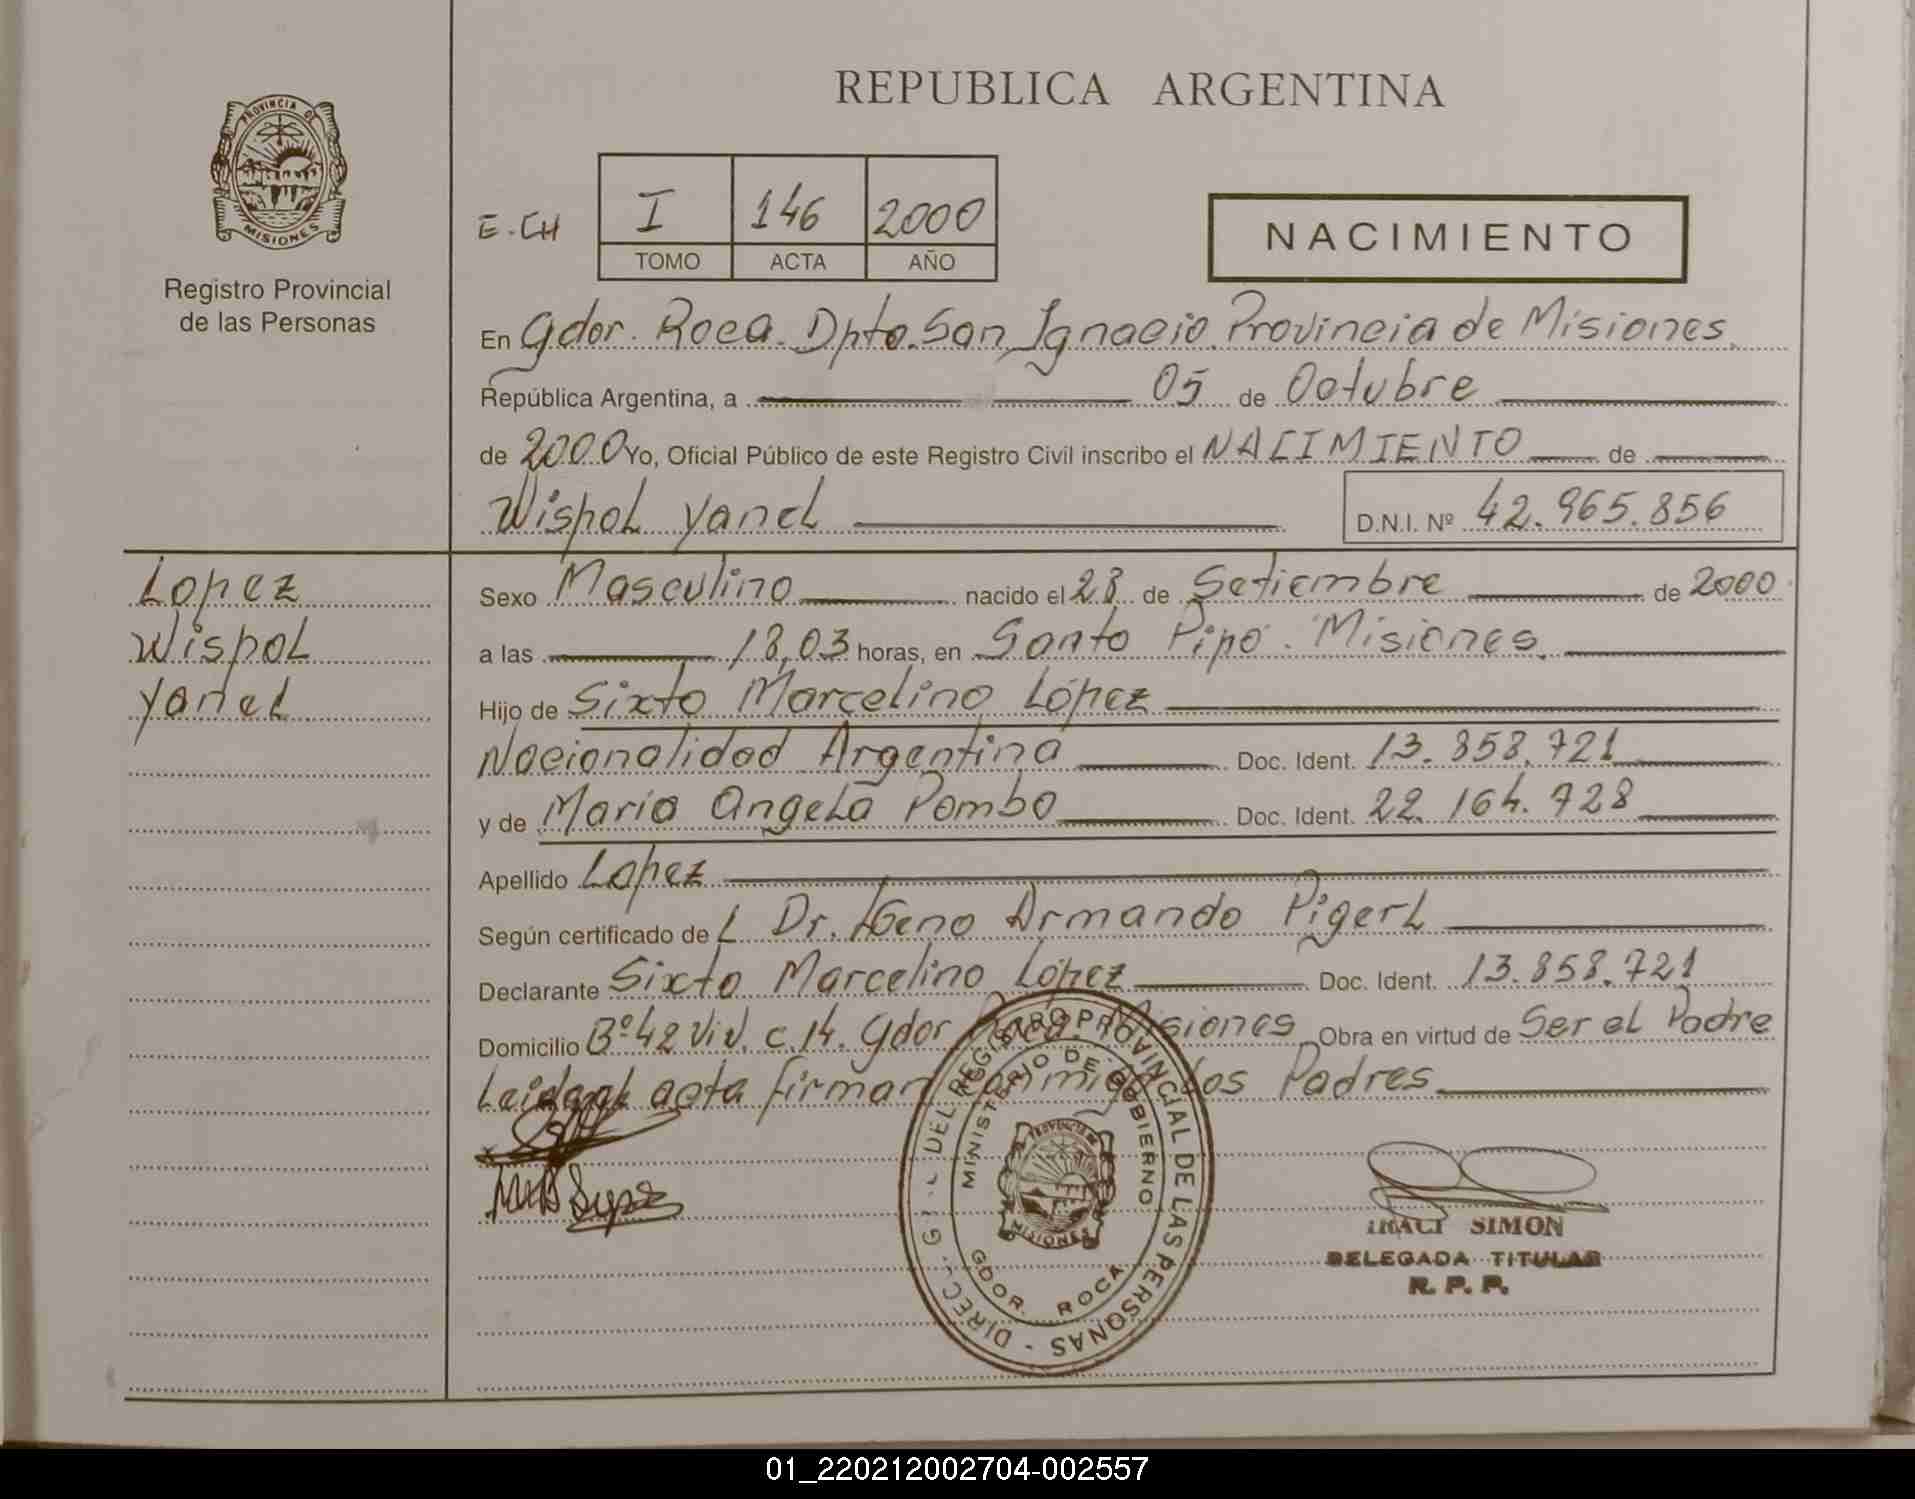 REPUBLICA ARGENTINA
PROVINCIA DE
MISIONES
Registro Provincial
de las Personas
E.CH
I 146 2000
TOMO ACTA AÑO
NACIMIENTO
En Gdor. Roca. Dpto. San Ignacio. Provincia de Misiones.
República Argentina, a 05 de Octubre
de 2000 Yo, Oficial Público de este Registro Civil inscribo el NACIMIENTO de
Wispol Yanel
D.N.I. Nº 42.965.856
Lopez
Wispol
Yanel
Sexo Masculino nacido el 28 de Setiembre de 2000
a las 18,03 horas, en Santo Pipó. Misiones.
Hijo de Sixto Marcelino López
Nacionalidad Argentina Doc. Ident. 13.858.721
y de María Angela Pombo Doc. Ident. 22.164.728
Apellido Lopez
Según certificado de L Dr. Armando Pigerl
Declarante Sixto Marcelino López Doc. Ident. 13.858.721
Domicilio Bº 42 Viv. c.14. Gdor Roca. Misiones Obra en virtud de Ser el Padre
Leida el acta firman conmigo los Padres
DEL REGISTRO PROVINCIAL DE LAS PERSONAS - DIREC.
MINISTERIO DE GOBIERNO
PROVINCIA DE
MISIONES
GDOR. ROCA
IRACI SIMON
DELEGADA TITULAR
R. P. P.
01_220212002704-002557